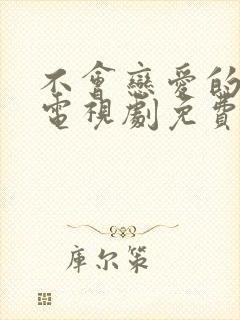 不會戀愛的
電視劇免費
庫尔策